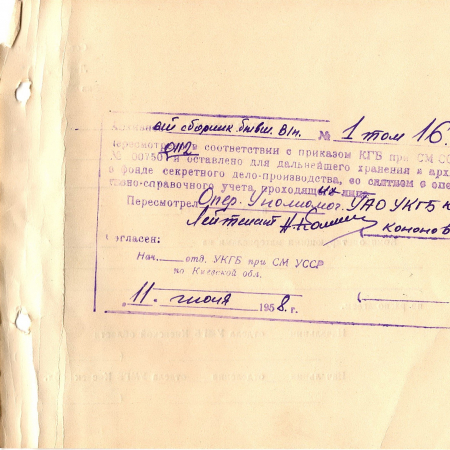 ый сборник бывш. в/п. № 1 том 16
0112
Пересмотрен в соответствии с приказом КГБ при СМ СС
№ 00750 и оставлено для дальнейшего хранения в арх
в фонде секретного дело-производства, со снятием с опе
тивно-справочного учета проходящих лиц.
Пересмотрел Опер. Уполномог. УАО УКГБ
Лейтенант Кононов
Согласен:
Нач. отд. УКГБ при СМ УССР
по Киевской обл.
„11. июня 1958. г.